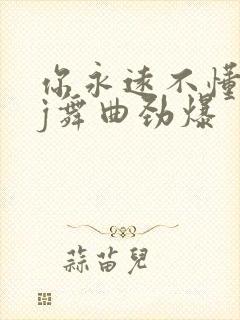 你永远不懂
j舞曲劲爆
蒜苗儿